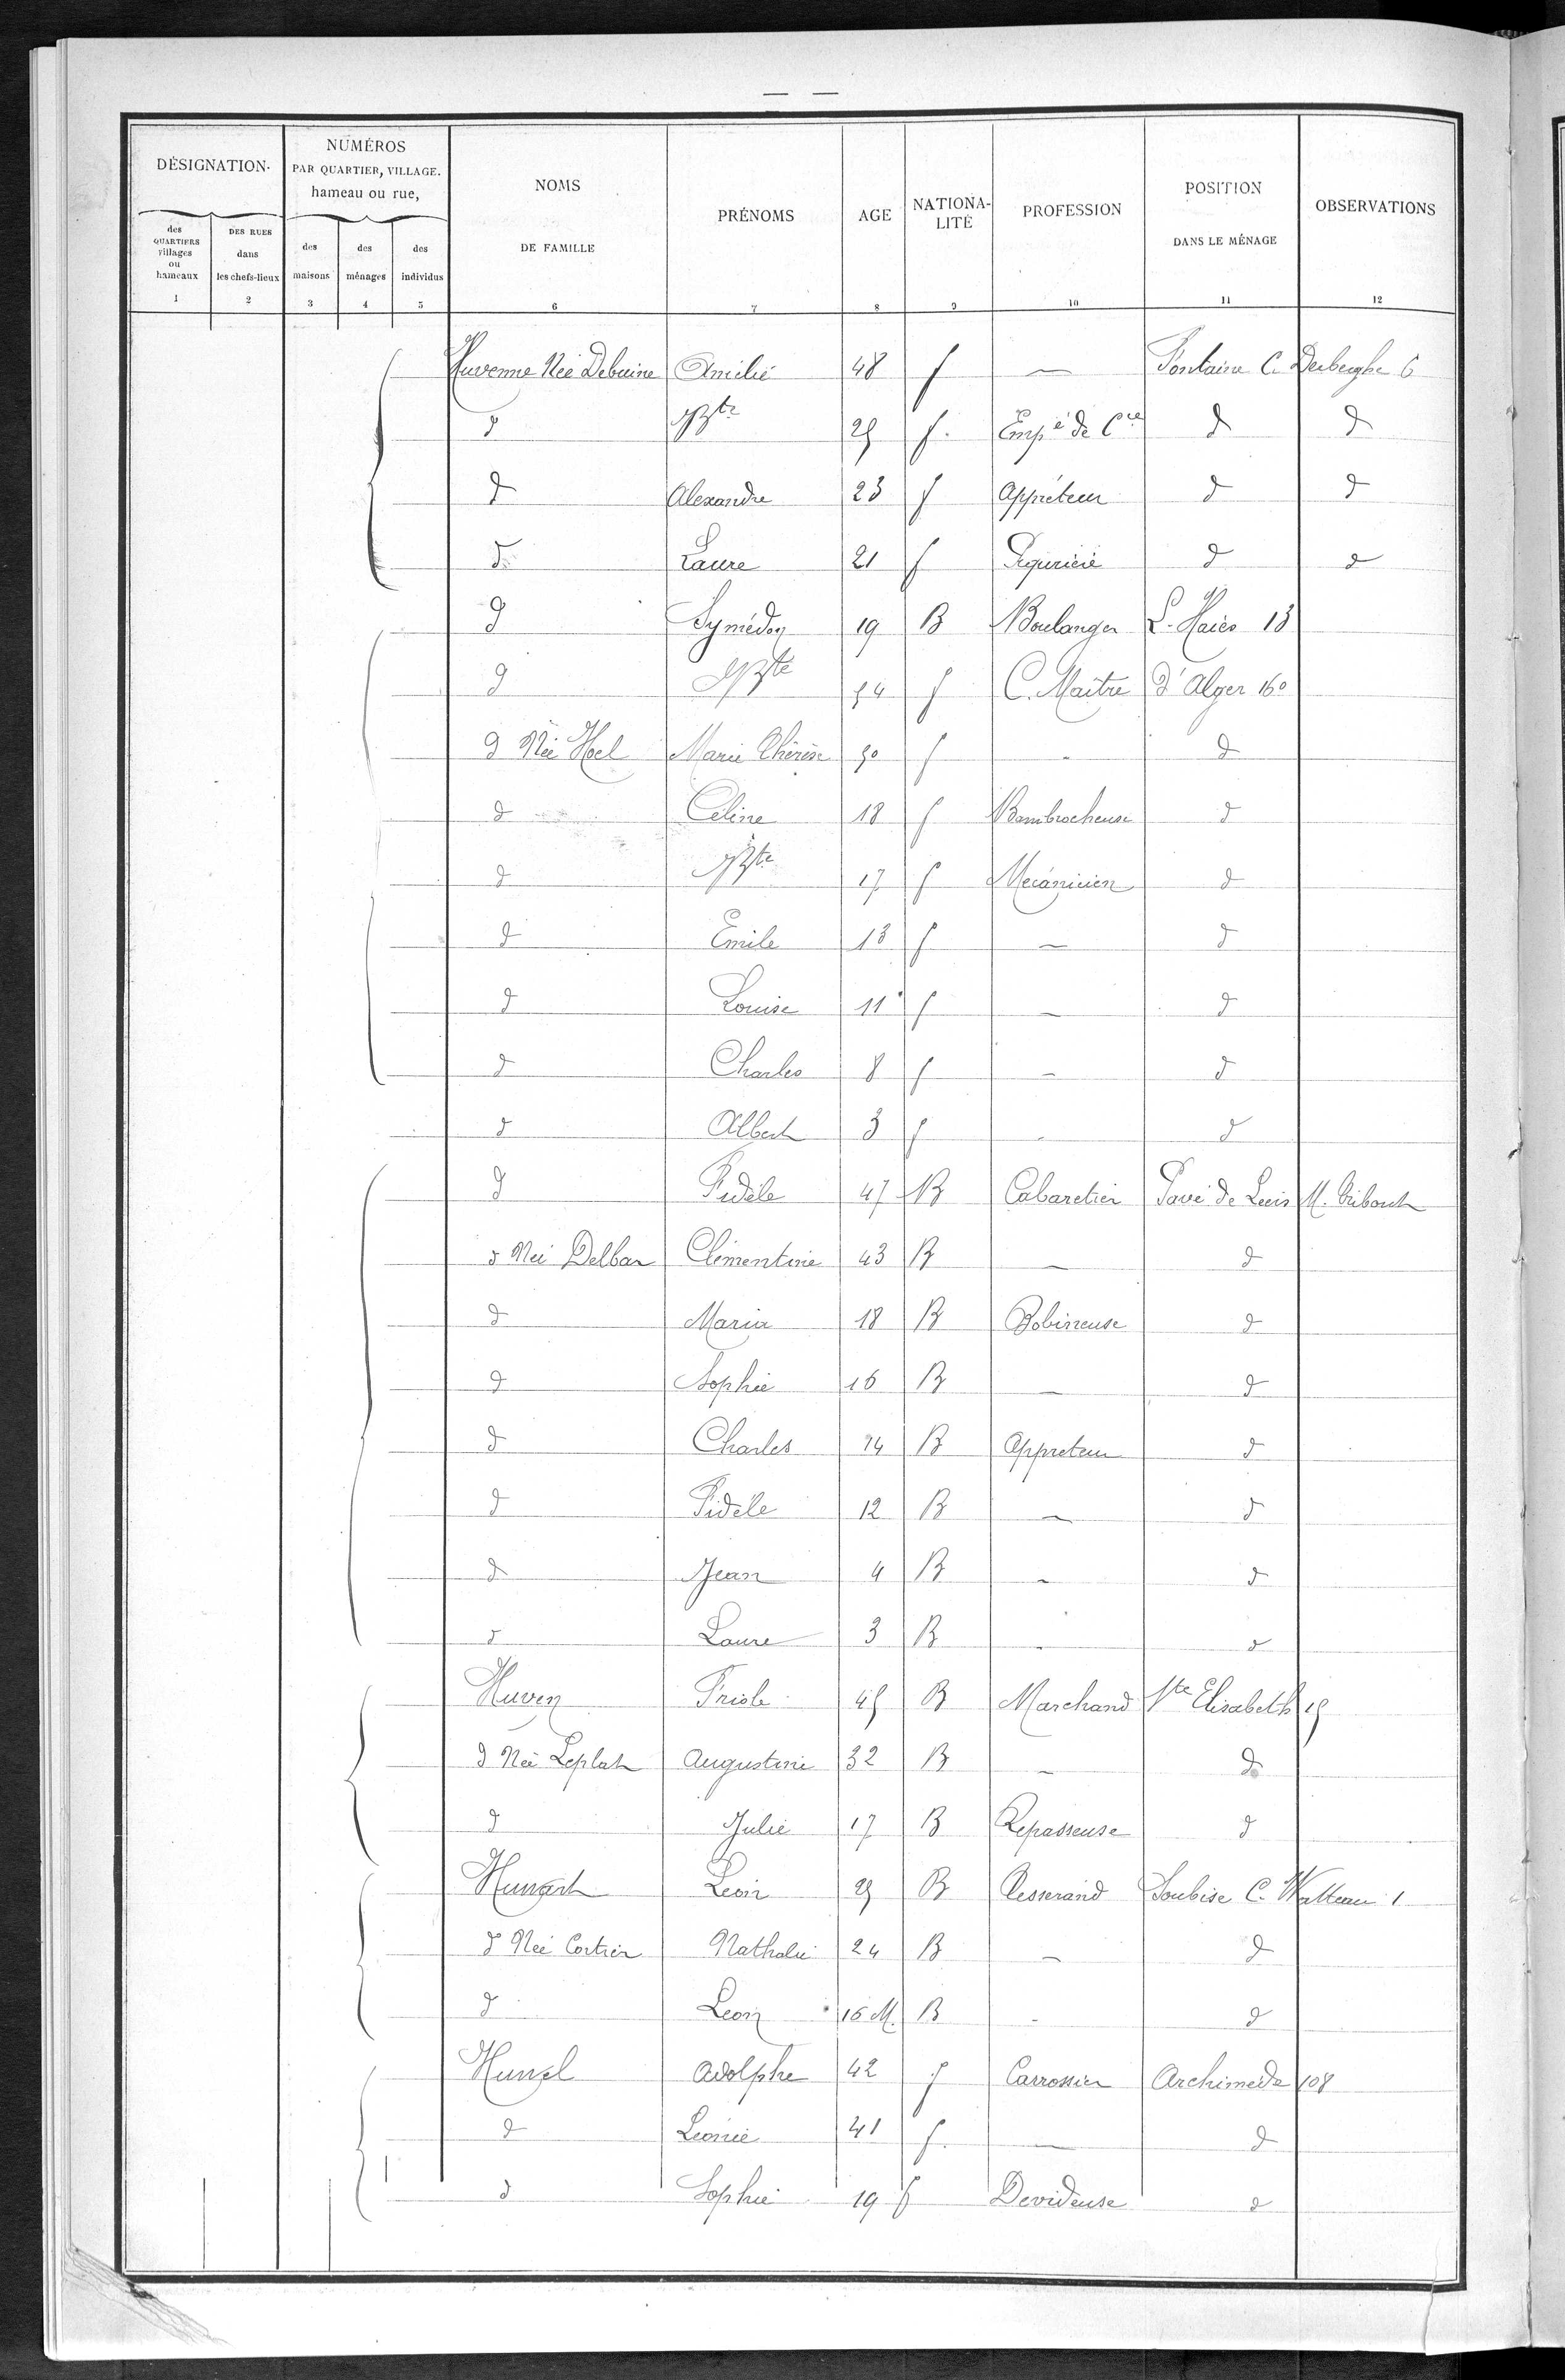 — —
DÉSIGNATION. NUMÉROS PAR QUARTIER, VILLAGE. hameau ou rue, NOMS DE FAMILLE PRÉNOMS AGE NATIONA-LITÉ PROFESSION POSITION DANS LE MÉNAGE OBSERVATIONS
des QUARTIERS villages ou hameaux DES RUES dans les chefs-lieux des maisons des ménages des individus
1 2 3 4 5 6 7 8 9 10 11 12
Huvenne Née Debuine Amélie 48 f — Fontaine C. Derberghe 6
d JBte 25 f. Empé de Cce d d
d Alexandre 23 f Appréteur d d
d Laure 21 f Piqurière d d
d Symédon 19 B Boulanger L. Haies 13
d JBte 54 f C. Maître d'Alger 160
d Née Hoel Marie Thérèse 50 f - d
d Céline 18 f Bambrocheuse d
d JBte 17 f Mecánicien d
d Emile 13 f — d
d Louise 11 f — d
d Charles 8 f — d
d Albert 3 f - d
d Fidèle 47 B Cabaretier Pavé de Leers M. Tribout
d Née Delbar Clémentine 43 B — d
d Maria 18 B Bobineuse d
d Sophie 16 B — d
d Charles 14 B Appreteur d
d Fidèle 12 B — d
d Jean 4 B — d
d Laure 3 B - d
Huven 45 B Marchand Ste Elisabeth 15
d Née Leplat Augustine 32 B — d
d Julie 17 B Repasseuse d
Léon 25 B Tesserand Soubise C. Watteau 1
d Née Cortier Nathalie 24 B — d
d Leon 16 M. B - d
Adolphe 42 f Carrossier Archimède 108
d Léonie 41 f. — d
d Sophie 19 f Devideuse d